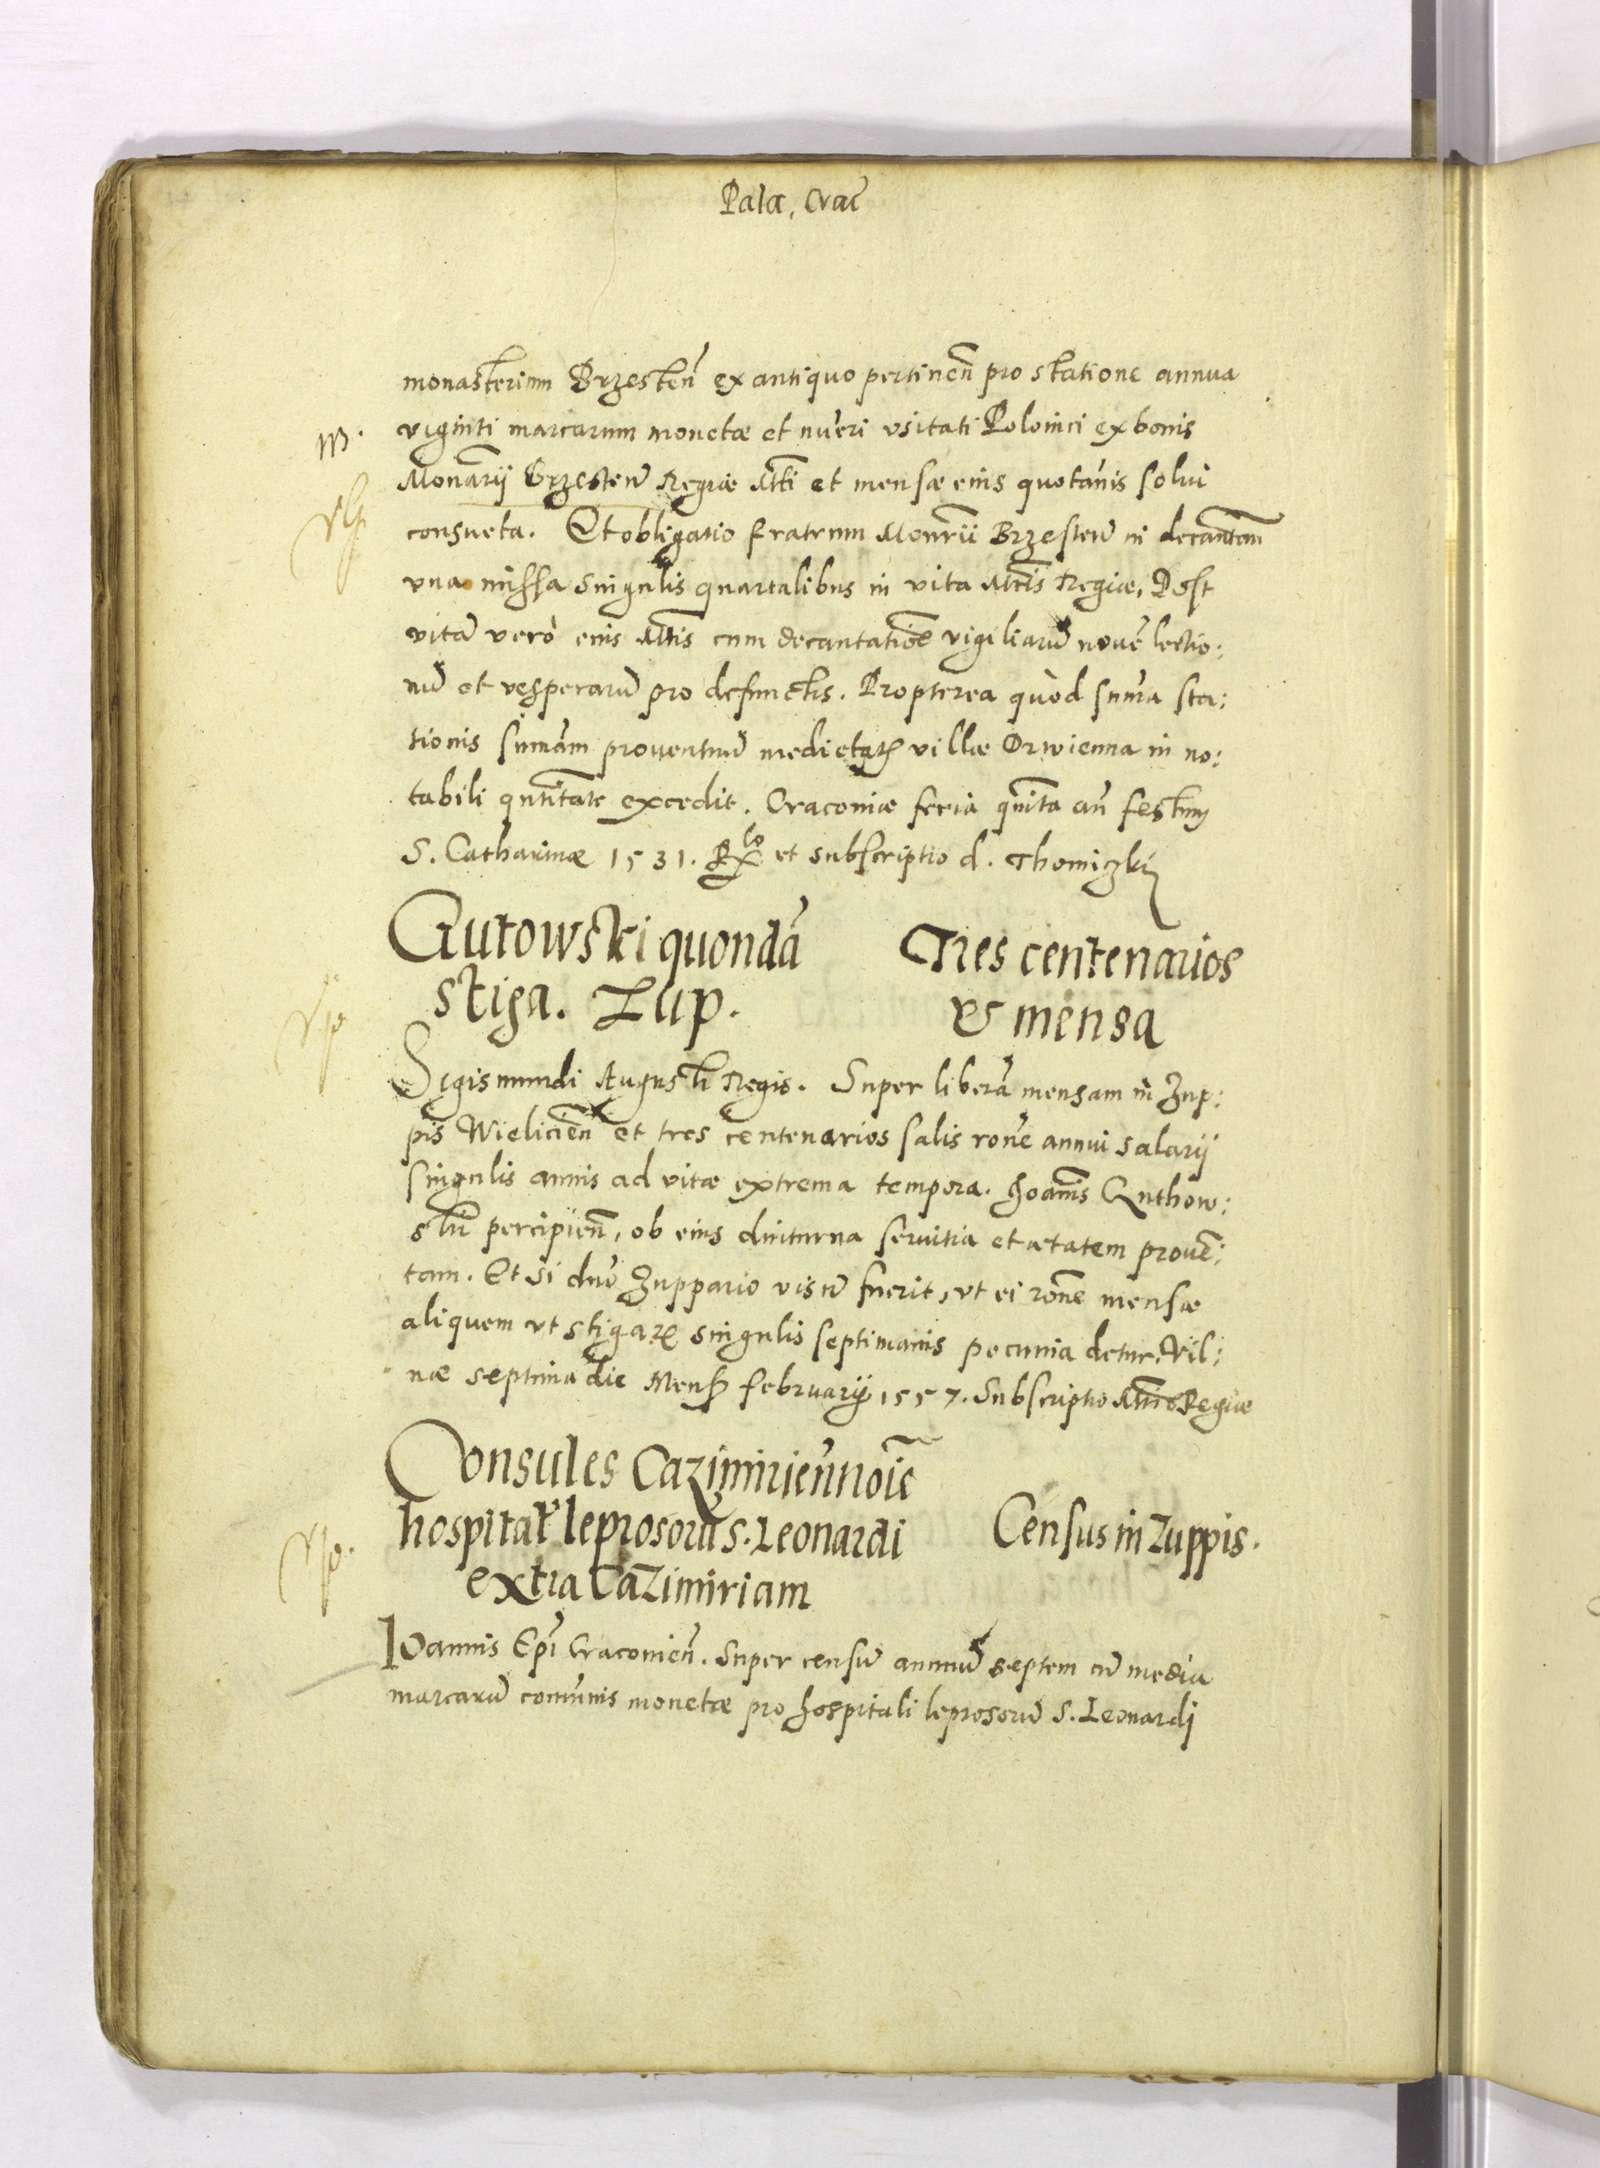 Pala. Crac̄
monasterium Brzesten̄ ex antiquo pertinen̄ pro statione annua
viginti marcarum monetæ et nūeri vsitati Polonici ex bonis
Monarij Brzesten̄ Regiæ Mtti et mensæ eius quotānis solui
consueta. Et obligatio fratrum Monrii Brzesten̄ in decantan̄
vna missa singulis quartalibus in vita Mttis Regiæ, Post
vitā verò eius Mttis cum decantatiōe vigiliarū nouē lectio:
nū et vesperarū pro defunctis. Propterea quòd sum̄a sta:
tionis sum̄am prouentuū medietatis villæ Orwienna in no:
tabili qntitate excedit. Craconiæ feria qnīta an̄ festum
S. Catharinæ 1531. Rlo et subscriptio d. Thomiczki
Gutowski quondā
Tres centenarios
stiga. Zup.
et mensa
Sigismundi Augusti Regis. Super liberā mensam in Zup:
pis Wielicien̄ et tres centenarios salis rone annui salarij
singulis annis ad vitæ extrema tempora. Joan̄is Guthow:
skii percipien̄, ob eius diuturna seruitia et ætatem prouec:
tam. Et si dno Zuppario visū fuerit, vt ei rone mensæ
aliquem vt stigaris singulis septimanis pecunia detur. Vil:
næ septima die Mens februarij 1557. Subscriptio Mttis Regiæ
Consules Cazimirien̄ noīe
hospital leprosorū S. Leonardi
Census in Zuppis.
extra Cazimiriam
Ioannis Epī Cracouien̄. Super censū annuū septem cū media
marcarū comūnis monetæ pro hospitali leprosorū S. Leonardi